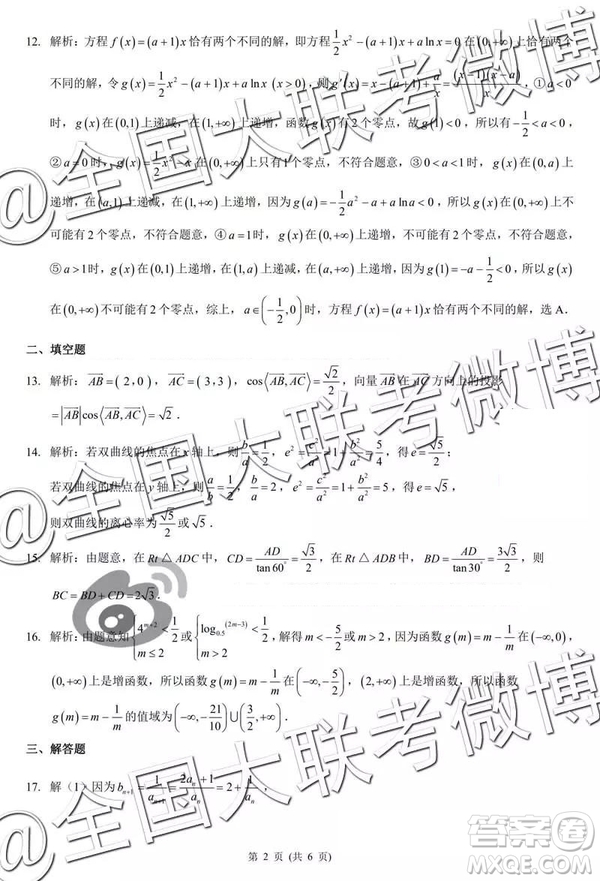 12. 解析：方程 f(x)=(a+1)x 恰有两个不同的解，即方程 1/2 x²-(a+1)x+a ln x=0 在(0,+∞)上恰有两个
不同的解，令 g(x)=1/2 x²-(a+1)x+a ln x (x>0)，则 g'(x)=x-(a+1)+a/x=(x-1)(x-a)/x，①a<0
时，g(x) 在(0,1)上递减，在(1,+∞)上递增，函数 g(x) 有 2 个零点，故 g(1)<0，所以有 -1/2<a<0，
②a=0 时，g(x)=1/2 x²-x 在(0,+∞)上只有 1 个零点，不符合题意，③0<a<1 时，g(x) 在(0,a)上
递增，在(a,1)上递减，在(1,+∞)上递增，因为 g(a)=-1/2 a²-a+a ln a<0，所以 g(x) 在(0,+∞)上不
可能有 2 个零点，不符合题意，④a=1 时，g(x) 在(0,+∞)上递增，不符合题意，
⑤a>1 时，g(x) 在(0,1)上递增，在(1,a)上递减，在(a,+∞)上递增，因为 g(1)=-a-1/2<0，所以 g(x)
在(0,+∞)不可能有 2 个零点，综上，a∈(-1/2,0)时，方程 f(x)=(a+1)x 恰有两个不同的解，选 A．
二、填空题
13. 解析：AB=(2,0)，AC=(3,3)，cos⟨AB,AC⟩=√2/2，向量 AB 在 AC 方向上的投影
=|AB|cos⟨AB,AC⟩=√2．
14. 解析：若双曲线的焦点在 x 轴上，则 b/a=1/2，e²=c²/a²=1+b²/a²=5/4，得 e=√5/2；
若双曲线的焦点在 y 轴上，则 a/b=1/2，e²=c²/a²=1+b²/a²=5，得 e=√5，
则双曲线的离心率为 √5/2 或 √5．
15. 解析：由题意，在 Rt△ADC 中，CD=AD/tan60°=√3/2，在 Rt△ADB 中，BD=AD/tan30°=3√3/2，则
BC=BD+CD=2√3．
16. 解析：由题意知{4^(m+2)<1/2, m≤2 或{log_0.5^(2m-3)<1/2, m>2，解得 m<-5/2 或 m>2，因为函数 g(m)=m-1/m 在(-∞,0)，
(0,+∞)上是增函数，所以函数 g(m)=m-1/m 在(-∞,-5/2)，(2,+∞)上是增函数，所以函数
g(m)=m-1/m 的值域为(-∞,-21/10)∪(3/2,+∞)．
三、解答题
17. 解（1）因为 b_(n+1)=1/a_(n+1)=(2a_n+1)/a_n=2+1/a_n，
第 2 页 (共 6 页)
@全国大联考微博
@全国大联考微博
@全国大联考微博
答案圈
MXQE.COM